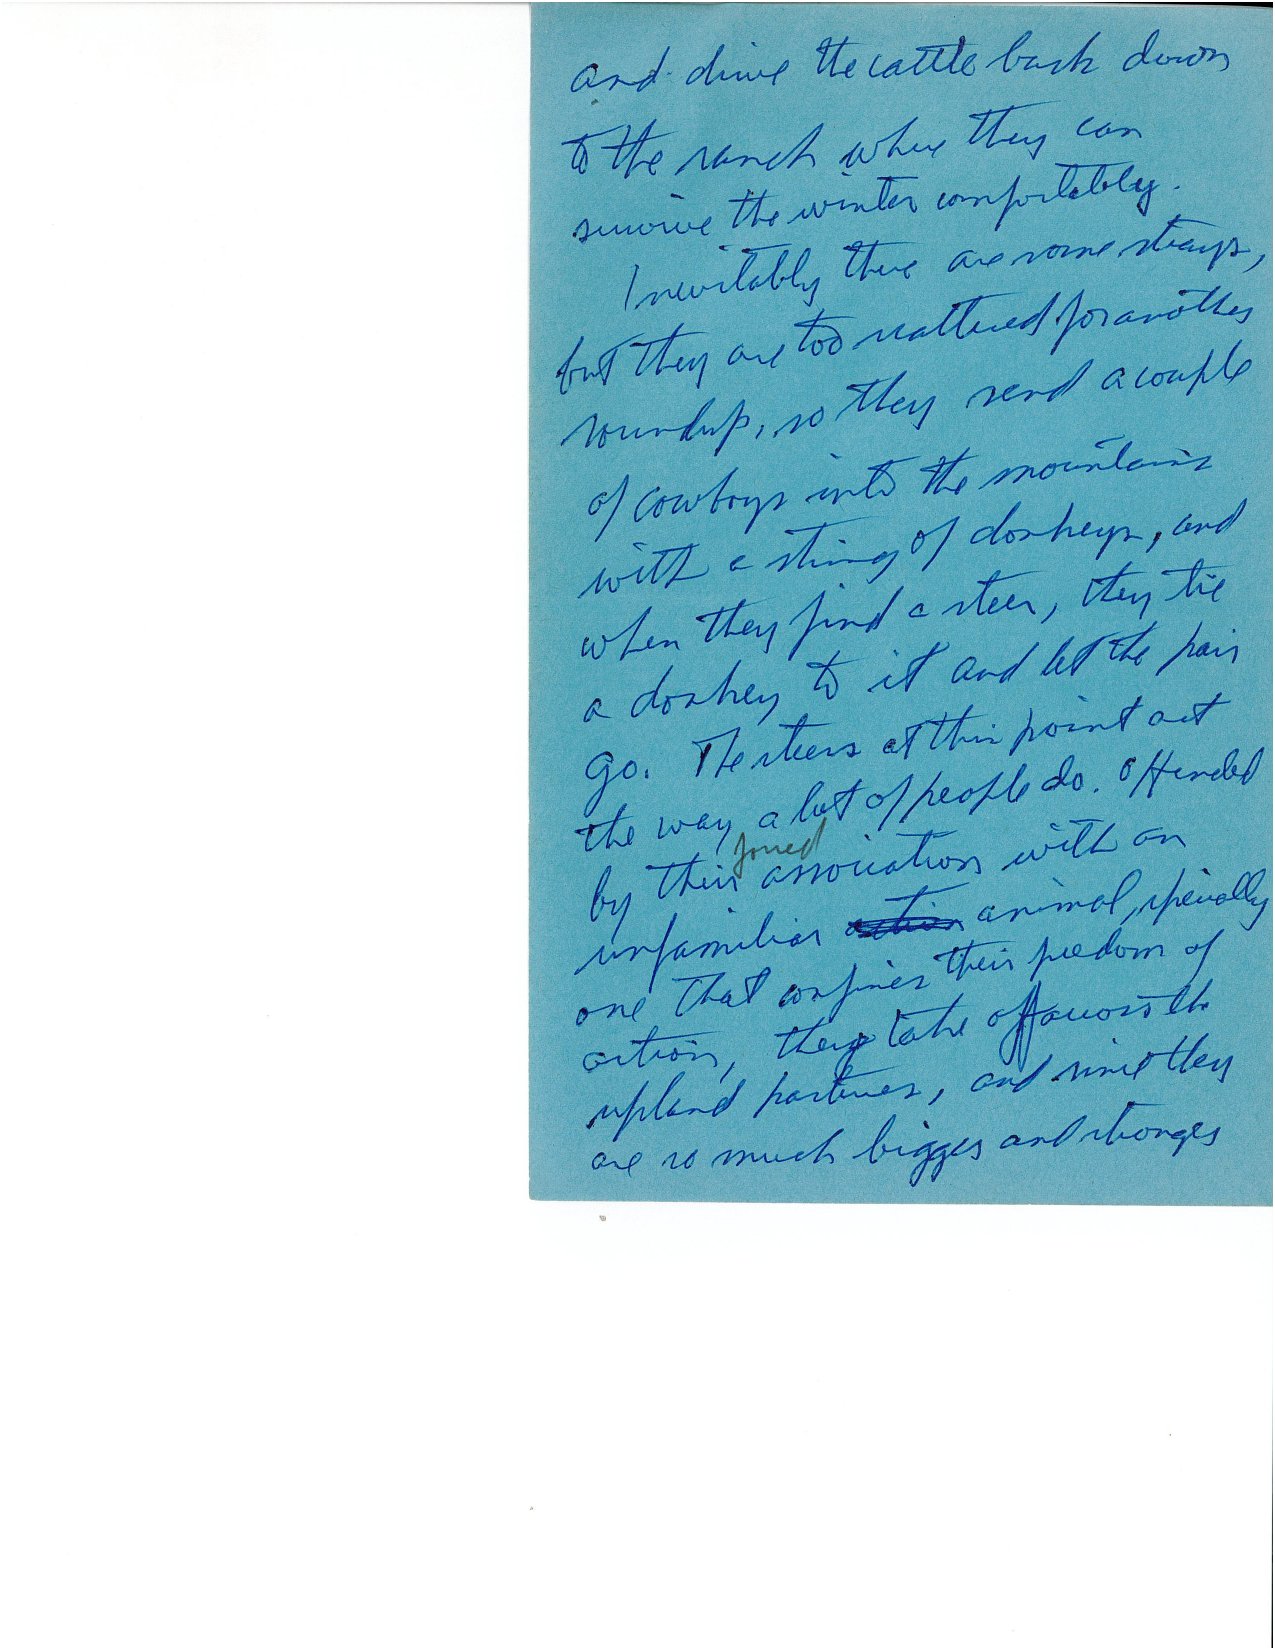 and drive the cattle back down
to the ranch where they can
survive the winter comfortably.
Inevitably there are some strays,
but they are too scattered for another
roundup, so they send a couple
of cowboys into the mountains
with a string of donkeys, and
when they find a steer, they tie
a donkey to it and let the pair
go. The steers at this point act
the way a lot of people do. Offended
forced
by their association with an
unfamiliar action animal, specially
one that confines their freedom of
action, they take off across the
upland pastures, and since they
are so much bigger and stronger